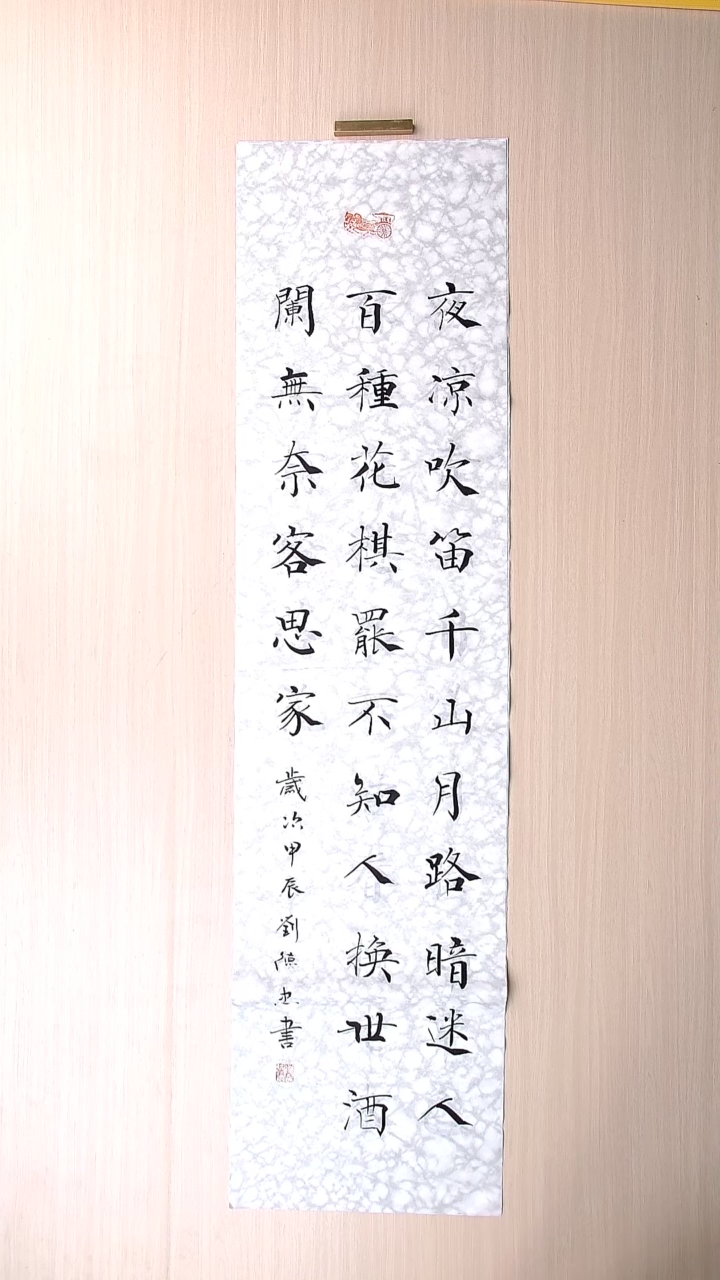 夜凉吹笛千山月路暗迷人
百種花棋罷不知人換世酒
闌無奈客思家
歲次甲辰劉書